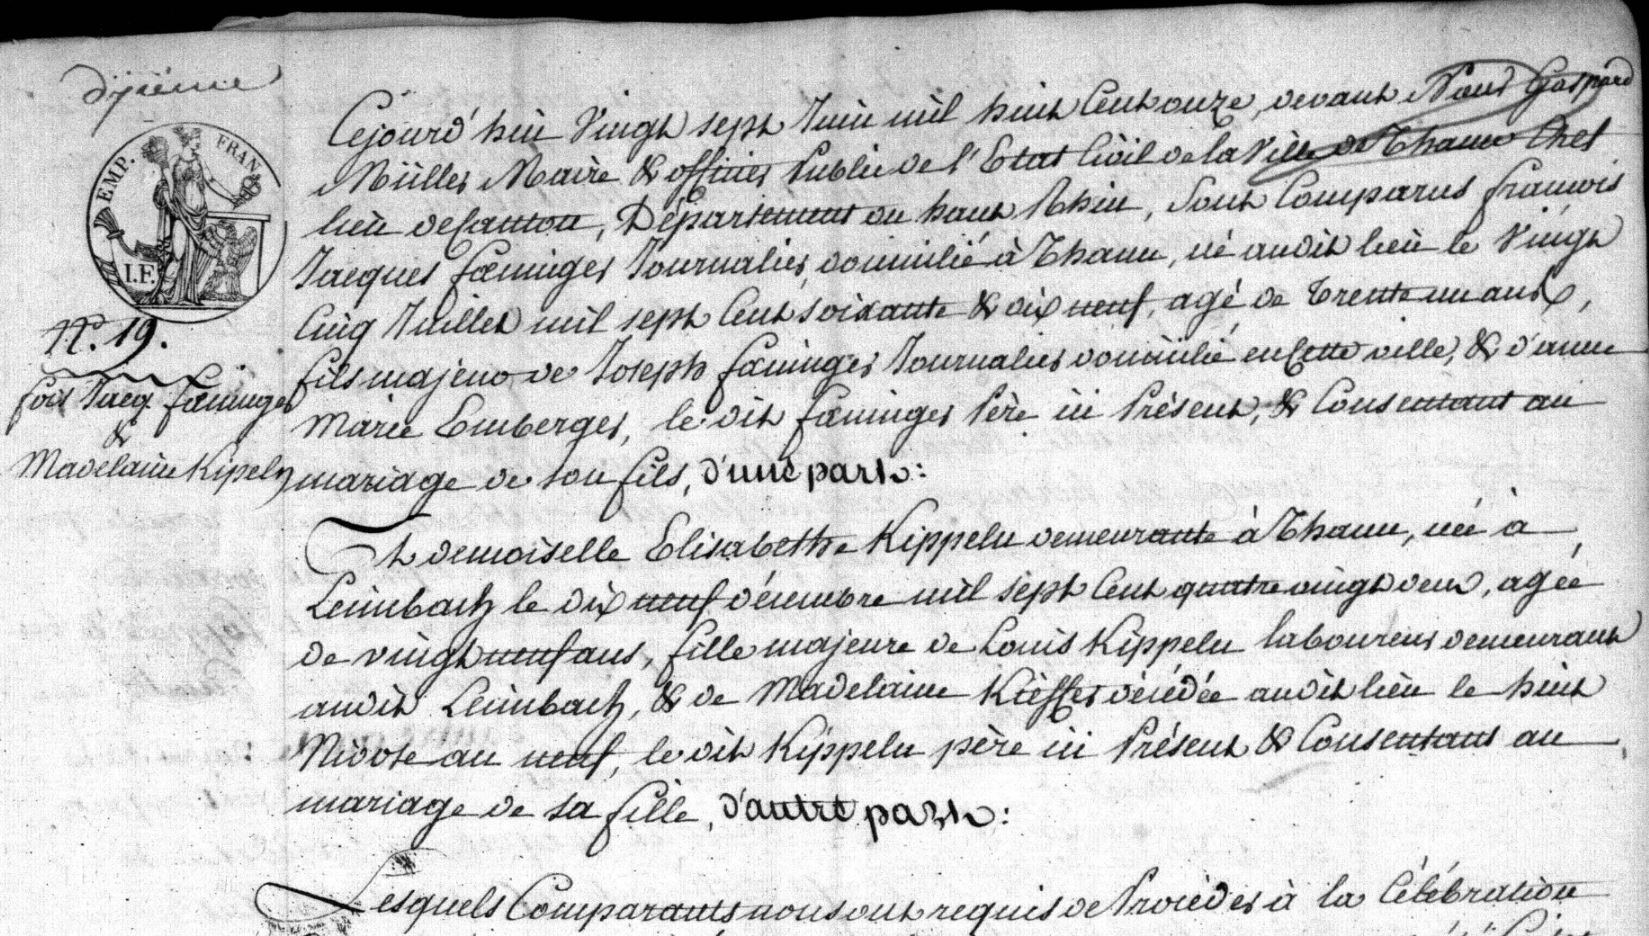 dixième
EMP. FRAN
I.F.
N°. 19.
fois Jacq. Fæninger
&
Madelaine Kipeln
Cejourd'hui Vingt sept Juin mil huit Cent onze, devant Nous Gaspard
Müller Maire & officier Public de l'Etat Civil de la Ville de Thann Chef
lieu de Canton, Département du haut Rhin, Sont Comparus françois
Jacques Fæninger Journalier, domicilié à Thann, né audit lieu le Vingt
Cinq Juillet mil sept Cent soixante & dix neuf, agé de Trente un ans,
fils majeur de Joseph Fæninger Journalier domicilié en Cette ville, & d'anne
Marie Emberger, le dit Fæninger Père ici Présent, & Consentant au
mariage de son fils, d'une part:
Et demoiselle Elisabethe Kippeln demeurante à Thann, née à
Leimbach le dix neuf décembre mil sept Cent quatre vingt deux, agée
de vingt neuf ans, fille majeure de Louis Kippeln laboureur demeurant
audit Leimbach, & de Madelaine Kieffer décédée audit lieu le huit
Nivose an neuf, le dit Kippeln père ici Présent & Consentant au
mariage de sa fille, d'autre part:
Lesquels Comparants nous ont requis de Procéder à la Célébration